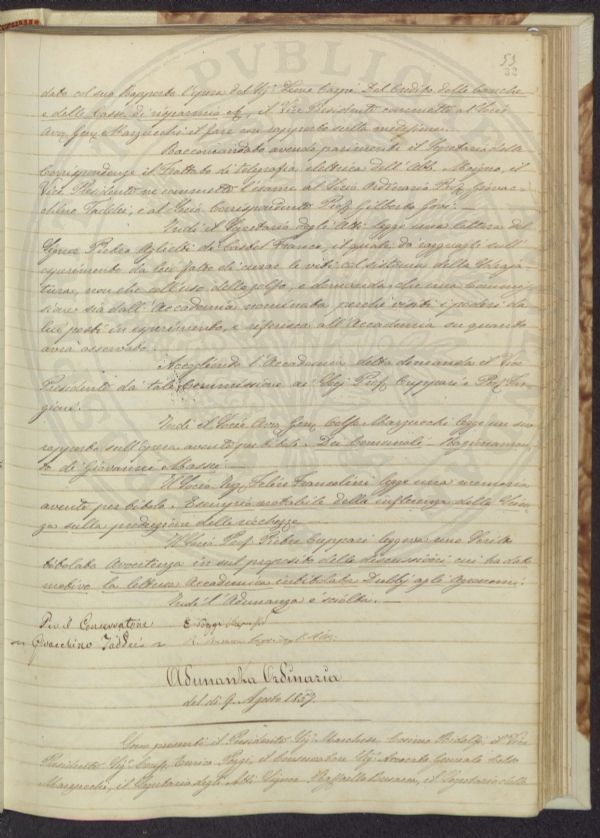 53
32
dato col suo Rapporto l'opera del Sig. Zeno Carpi Del Credito delle banche
e delle Casse di risparmio &, il Vice Presidente commette al Socio
Avv. Gen. Marzucchi il fare un rapporto sulla medesima.
Raccomandato avendo parimente il Segretario delle
Corrispondenze il Trattato di telegrafia elettrica dell'Ab. Majna, il
Vice Presidente ne commette l'esame al Socio Ordinario Prof. Giovac-
chino Taddei, e al Socio Corrispondente Prof. Gilberto Govi.
Indi il Segretario degli Atti legge una lettera del
Signor Pietro di Castel Franco, il quale dà ragguagli sull'
esperimento da lui fatto di curare le viti col sistema della
tura, non che coll'uso dello zolfo, e domanda che una Commis-
sione sia dall'Accademia nominata perchè visiti i poderi da
lui posti in esperimento, e riferisca all'Accademia su quanto
avrà osservato.
Accogliendo l'Accademia detta domanda il Vice
Presidente dà tale Commissione ai Sigg. Prof. Cuppari e Prof. Tar-
gioni.
Indi il Socio Avv. Gen. Celso Marzucchi legge un suo
rapporto sull'opera avente per titolo - Dei Comunali - Ragionamen-
to di Giovanni Massei. —
Il Socio Ing. Felice Francolini legge una memoria
avente per titolo - Esempio notabile della influenza della Scien-
za sulla produzione della ricchezza.
Il Socio Prof. Pietro Cuppari leggeva uno Scritto
titolato Avvertenza in sul proposito delle discussioni cui ha dato
motivo la lettura Accademica intitolata Dubbj agli Agronomi.
Indi l'Adunanza è sciolta. —
Pro il Conservatore
Gioacchino Taddei
E. Poggi
Adunanza Ordinaria
del dì 9. Agosto 1857.
Sono presenti il Presidente Sig. Marchese Cosimo Ridolfi, il Vice
Presidente Sig. Consig. Enrico Poggi, il Conservatore Sig. Avvocato Generale Celso
Marzucchi, il Segretario degli Atti Signor Raffaello Busacca, il Segretario delle